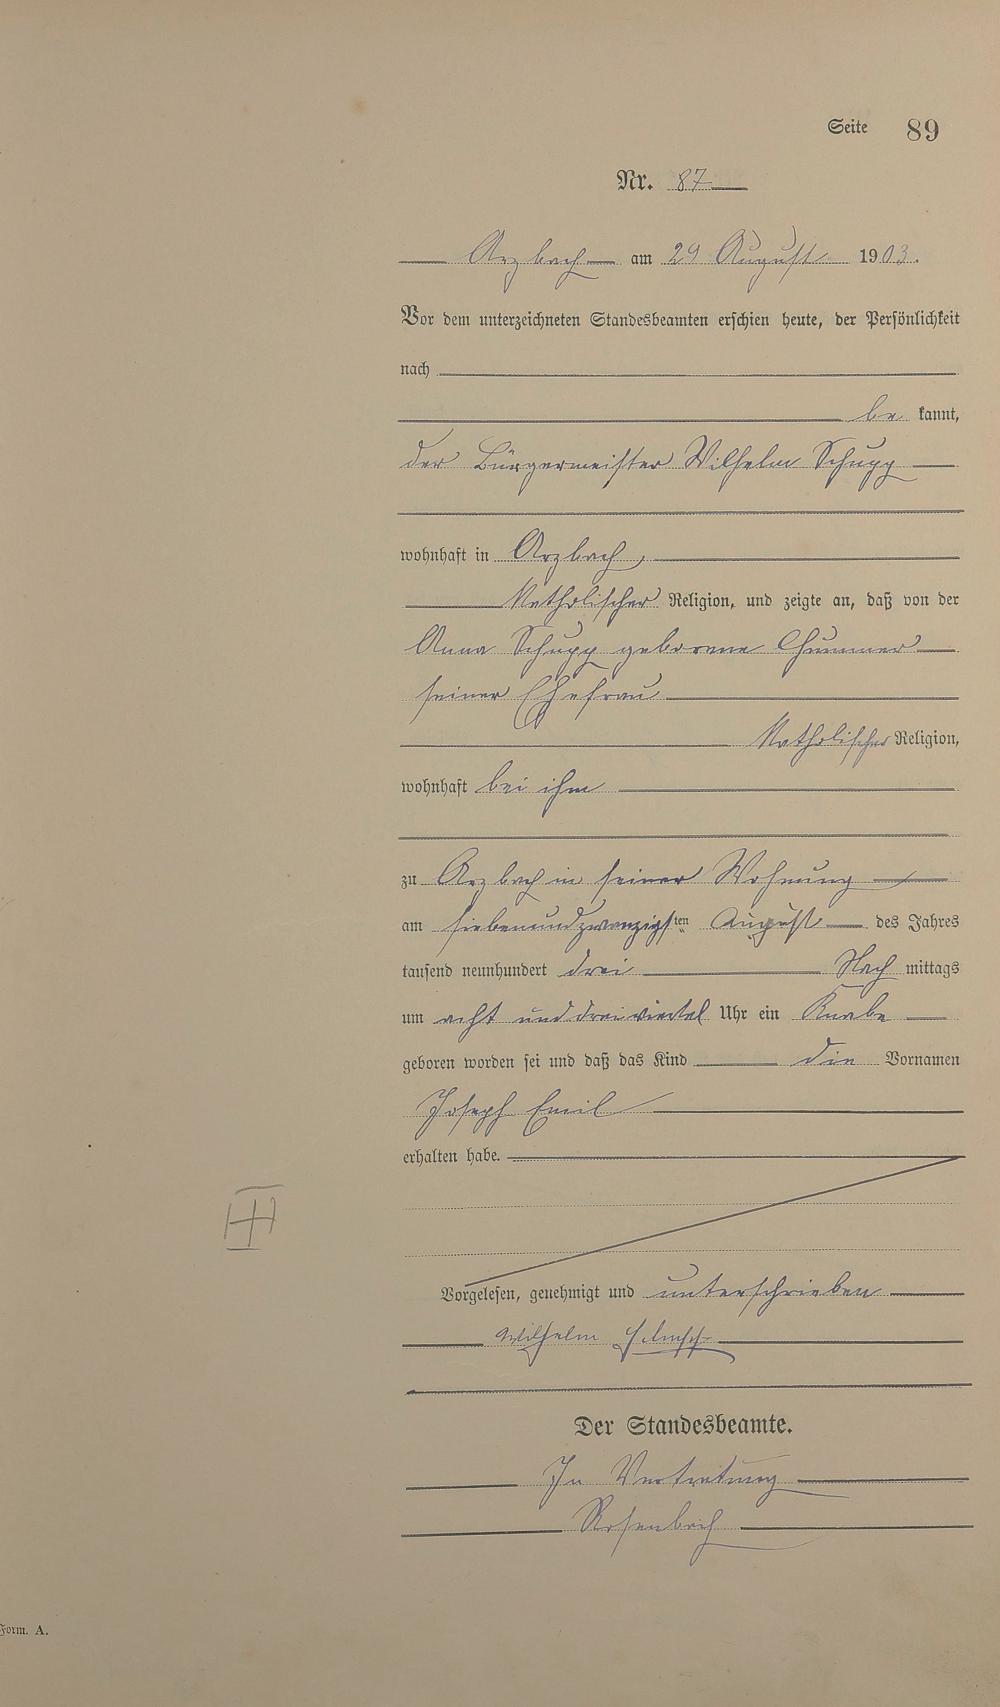 Seite 89
Nr. 87
Arzbach am 29 August 1903.
Vor dem unterzeichneten Standesbeamten erschien heute, der Persönlichkeit
nach
be kannt,
der Bürgermeister Wilhelm Schupp
wohnhaft in Arzbach,
katholischer Religion, und zeigte an, daß von der
Anna Schupp geborene
seiner Ehefrau
katholischer Religion,
wohnhaft bei ihm
zu Arzbach in seiner Wohnung
am siebenundzwanzigsten August des Jahres
tausend neunhundert drei Nach mittags
um acht und dreiviertel Uhr ein Knabe
geboren worden sei und daß das Kind die Vornamen
Joseph Emil
erhalten habe.
Vorgelesen, genehmigt und unterschrieben
Wilhelm
Der Standesbeamte.
In Vertretung
Rosenbach
Form. A.